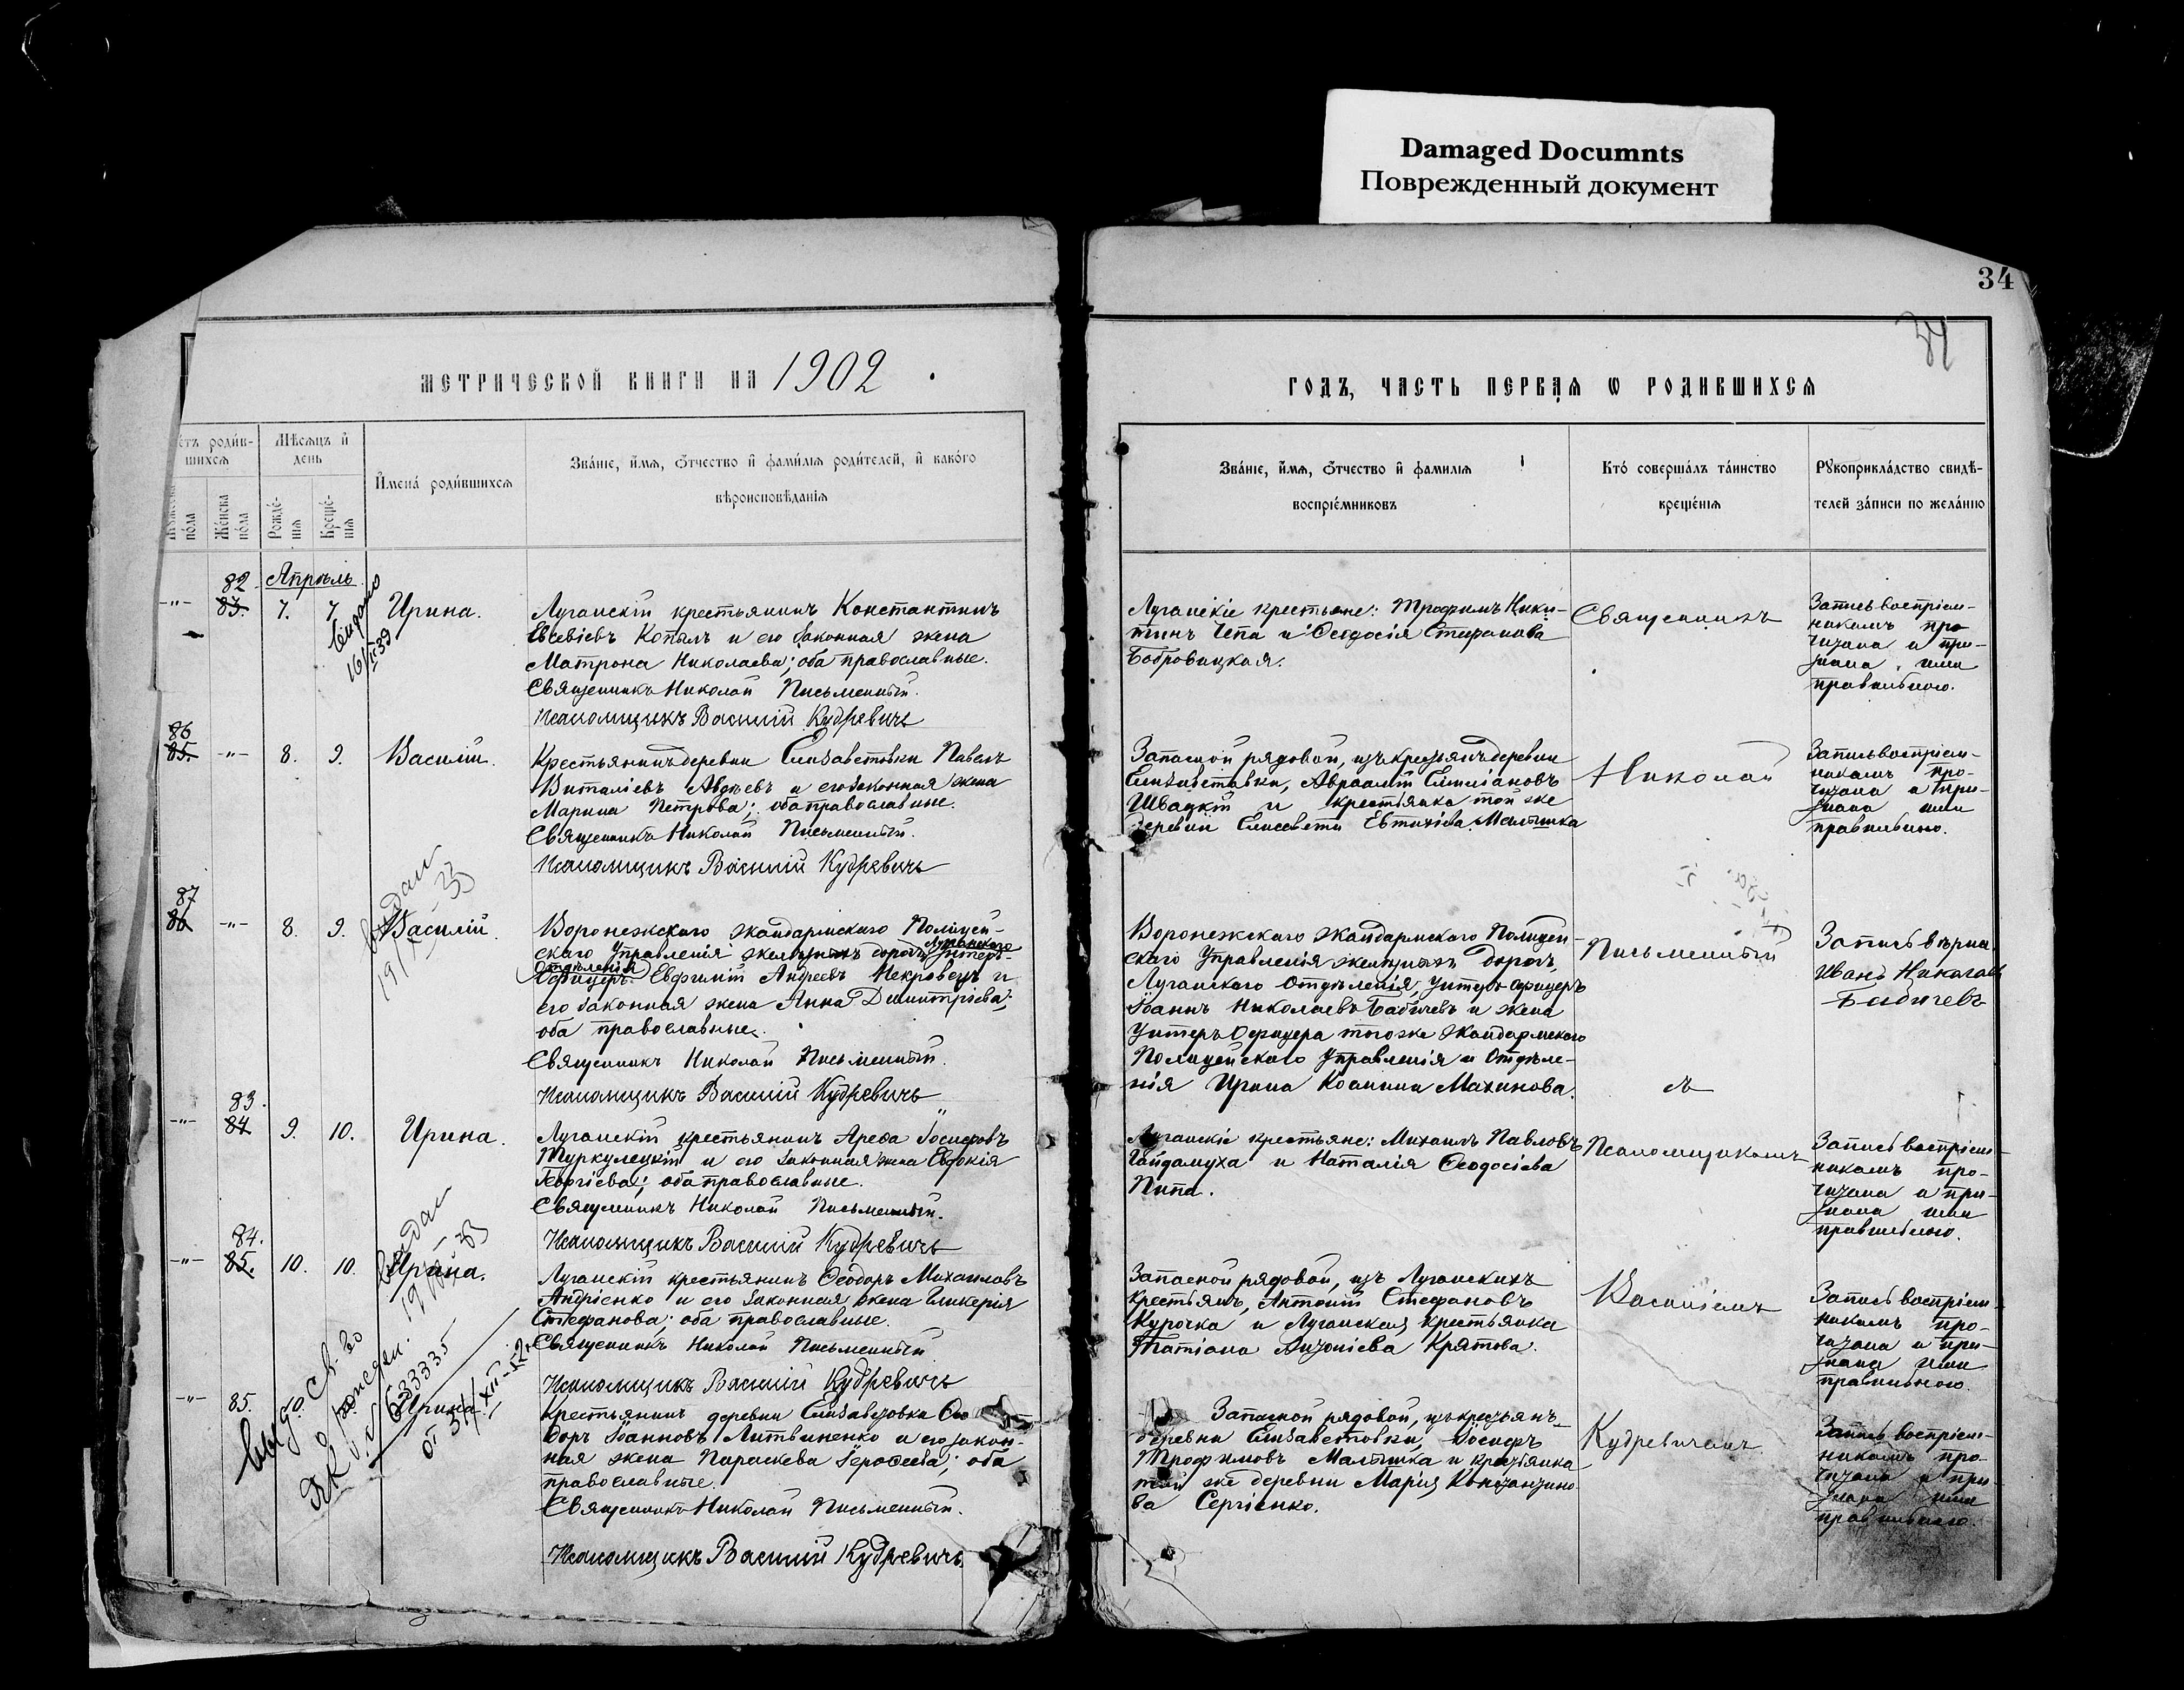 Damaged Documnts
Поврежденный документ
34
34
метрической книги на 1902
годъ, часть первая ѡ родившихся
родив-
шихся
Мѣсяцъ и
день
Женска
пола
Рожде-
нія
Креще-
нія
Имена родившихся
Званіе, имя, отчество и фамилія родителей, и какого
вѣроисповѣданія
Званіе, имя, отчество и фамилія
воспріемниковъ
Кто совершалъ таинство
крещенія
Рукоприкладство свидѣ-
телей записи по желанію
Апрѣль
82
83. 7. 7. Ирина.
Луганскій крестьянинъ Константинъ
Евсевіевъ Копалъ и его законная жена
Матрона Николаева; оба православные.
Священникъ Николай Письменный.
Псаломщикъ Василій Кудревичъ
Луганскіе крестьяне: Трофимъ Ники-
тинъ Чепа и Ѳеодосія Стефанова
Бобровицкая.
Священникъ
Запись воспріем-
никамъ про
читана и при-
знана ими
правильною.
86
85. 8. 9. Василій.
Крестьянинъ деревни Елизаветовки Павелъ
Виталіевъ Авдѣевъ и его законная жена
Марина Петрова; оба православные.
Священникъ Николай Письменный.
Псаломщикъ Василій Кудревичъ
Запасной рядовой, изъ крестьянъ деревни
Елизаветовки, Авраамій Емиліановъ
Швацкій и крестьянка той же
деревни Елисавета Евтихіева Малышка
Николай
Запись воспріем-
никамъ про-
читана и при-
знана ими
правильною.
87
86 8. 9. Василій.
Воронежскаго Жандармскаго Полицей-
скаго Управленія желѣзныхъ дорогъ Унтеръ-
Луганскаго
Отдѣленія
Офицеръ Евфимій Андреевъ Некровецъ и
его законная жена Анна Димитріева;
оба православные.
Священникъ Николай Письменный.
Псаломщикъ Василій Кудревичъ
Воронежскаго Жандармскаго Полицей-
скаго Управленія желѣзныхъ дорогъ,
Луганскаго Отдѣленія, Унтеръ-офицеръ
Іоаннъ Николаевъ Бабичевъ и жена
Унтеръ Офицера того же Жандармскаго
Полицейскаго Управленія и Отдѣле-
нія Ирина Іоаннина Махинова.
Письменный
съ
Запись вѣрна
Иванъ Николаевъ
Бабичевъ
83.
84 9. 10. Ирина.
Луганскій крестьянинъ Ареѳа Іосифовъ
Туркулецкій и его законная жена Евдокія
Георгіева; оба православные.
Священникъ Николай Письменный.
Псаломщикъ Василій Кудревичъ
Луганскіе крестьяне: Михаилъ Павловъ
Гайдамуха и Наталія Ѳеодосіева
Пипа.
Псаломщикомъ
Запись воспріем-
никамъ про-
читана и при-
знана ими
правильною.
84.
85. 10. 10. Ирина.
Луганскій крестьянинъ Ѳеодоръ Михаиловъ
Андріенко и его законная жена Гликерія
Стефанова; оба православные.
Священникъ Николай Письменный
Псаломщикъ Василій Кудревичъ
Запасной рядовой, изъ Луганскихъ
крестьянъ, Антоній Стефановъ
Курочка и Луганская крестьянка
Татіана Антоніева Кратова.
Василіемъ
Запись воспріем-
никамъ про-
читана и при-
знана ими
правильною.
85. Ирина
Крестьянинъ деревни Елизаветовки Ѳео
доръ Іоанновъ Литвиненко и его закон-
ная жена Параскева Іероѳеева; оба
православные.
Священникъ Николай Письменный.
Псаломщикъ Василій Кудревичъ.
Запасной рядовой, изъ крестьянъ
деревни Елизаветовки, Іосифъ
Трофимовъ Малышка и крестьянка
той же деревни Марія Константино-
ва Сергіенко.
Кудревичемъ
Запись воспріем-
никамъ про-
читана и при-
знана ими
правильною.